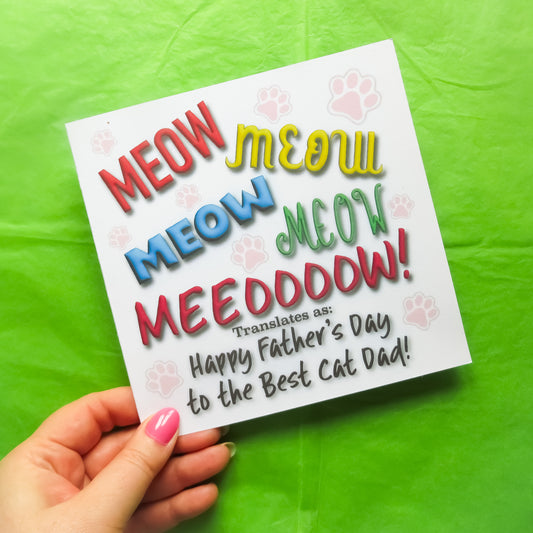 MEOW MEOW
MEOW MEOW
MEEOOOOW!
Translates as:
Happy Father's Day
to the Best Cat Dad!